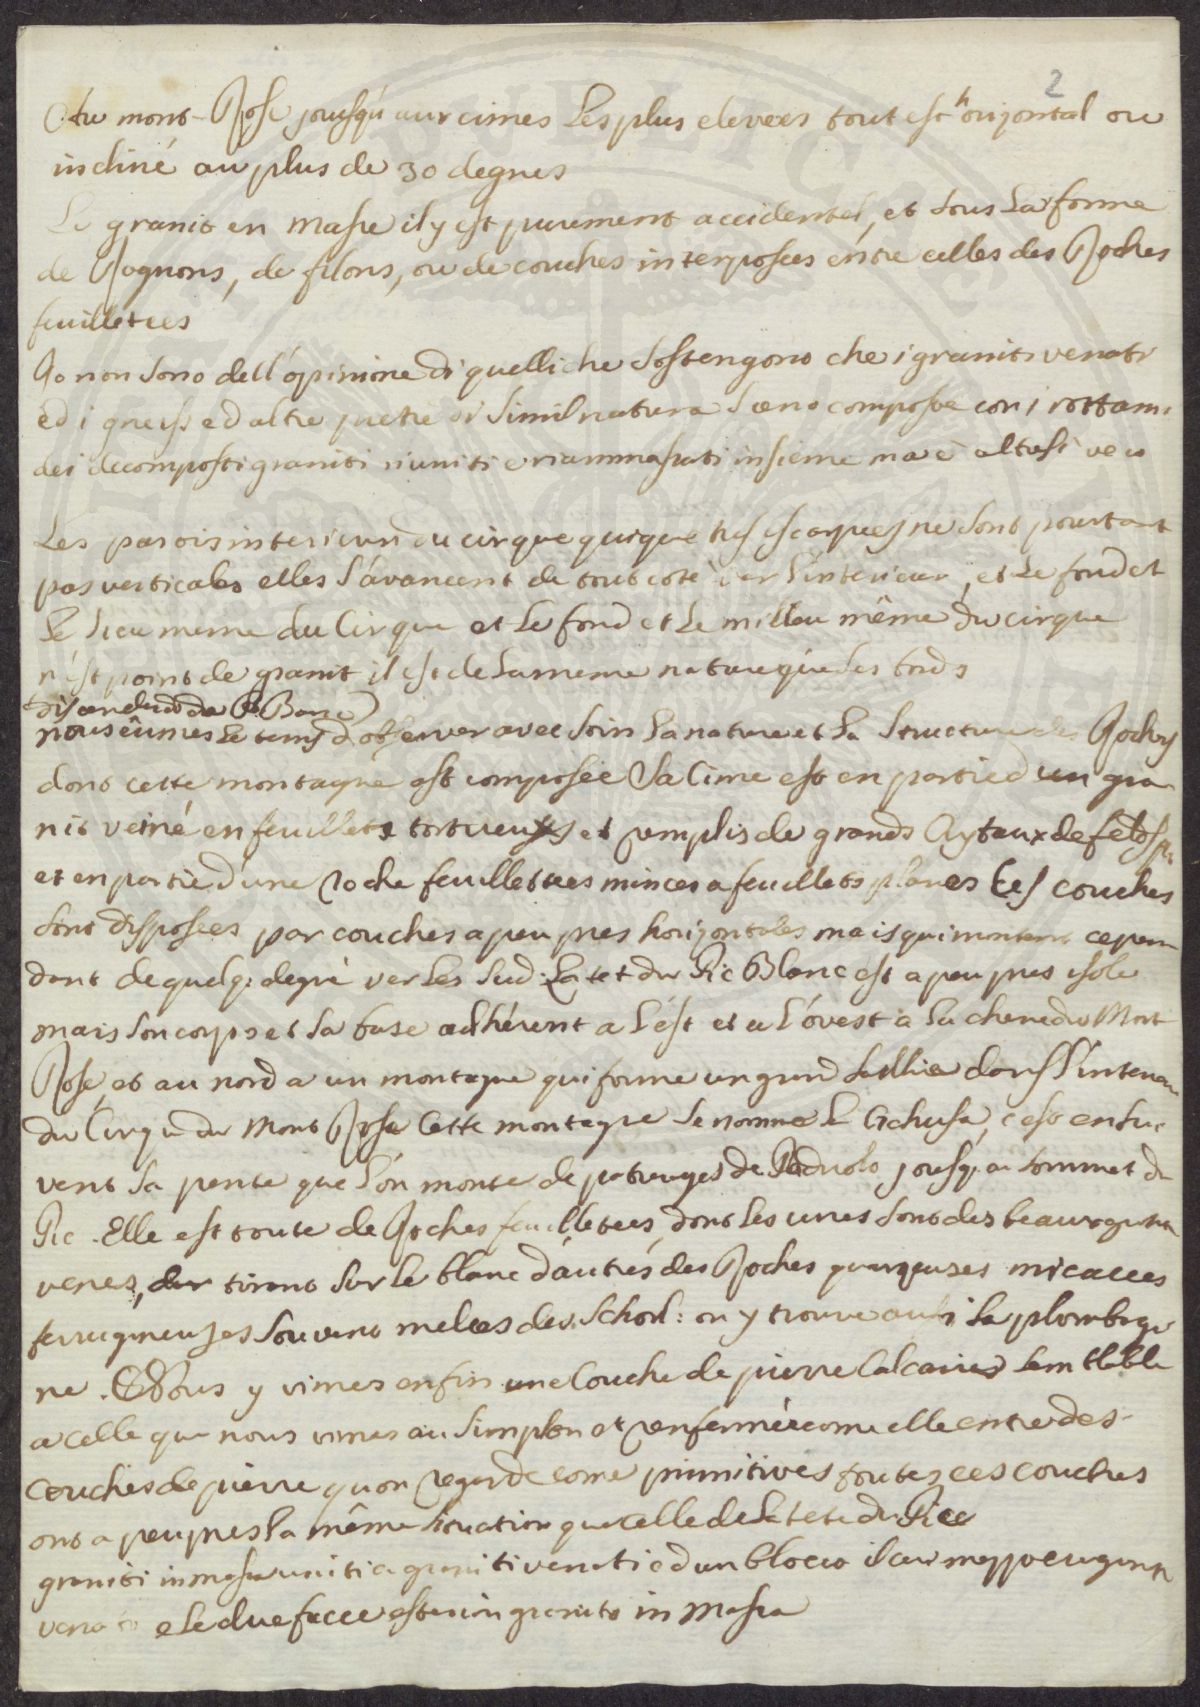 2
du mont-Rose jousqu'aux cimes Les plus elevees tout est horizontal ou
incliné au plus de 30 degres
Le granit en Masse il y est purement accidentel, et sous La forme
de Rognons, de filons, ou de couches interposees entre celles des Roches
feuilletees
Io non sono dell'opinione di quelli che sostengono che i graniti venati
ed i gneiss ed altre pietre di simil natura sieno composte con i rottami
dei decomposti graniti riuniti e riammassati insieme ma è altresi vero
Les parois interieurs du cirque quique tres escarpues ne sont pourtant
pas verticales elles s'avancent de tout coté ver l'interieur, et Le fond et
Le lieu meme du Cirque et Le fond et Le millieu même du cirque
n'est point de granit il est de La meme nature que Les bords
discendendo da P. Banc
nous eûmes Le tems d'observer avec soin La nature et La Structure des Rochers
dont cette montagne est composée Sa Cime est en partie d'un gra
nit veiné en feuillets tortueux et remplis de grands Cristaux de feldspa
et en partie d'une roche feuilletees minces a feuillets planes Ces couches
sont disposees par couches a peu pres horizontales mais qui montent cepen
dant de quelq: degré ver Les Sud: La tet du Pic Blanc est a peu pres isole
mais son corps et sa base adhérent a L'ést et a L'óvest à La chene du Mont
Rose, et au nord a un montagne qui forme un grand saillie dans L'interieur
du Cirque du Mont Rose Cette montagne se nomme Le Cichusa, c'est en sui
vent sa pente que L'on monte de paturages de Pedriolo jousq: au sommet du
Pic. Elle est toute de Roches feuilletees, dont Les unes sont des beaux granits
venes, tirant sur Le blanc d'autres des Roches quarzeuses micacees
ferrugineuzes souvent melees des Schorl: on y trouve aussi La plombagi
ne. Nous y vimes enfin une Couche de pierre Calcaires semblable
a celle que nous vimes au Simplon et renfermée come elle entre des
couches de pierre qu'on regarde come primitives toutes ces couches
ont a peu pres La même situation que celle de La tete du Pic
graniti in massa uniti a graniti venati ed un blocco il cui mezzo era granito
venato e Le due facce esteriori granito in Massa